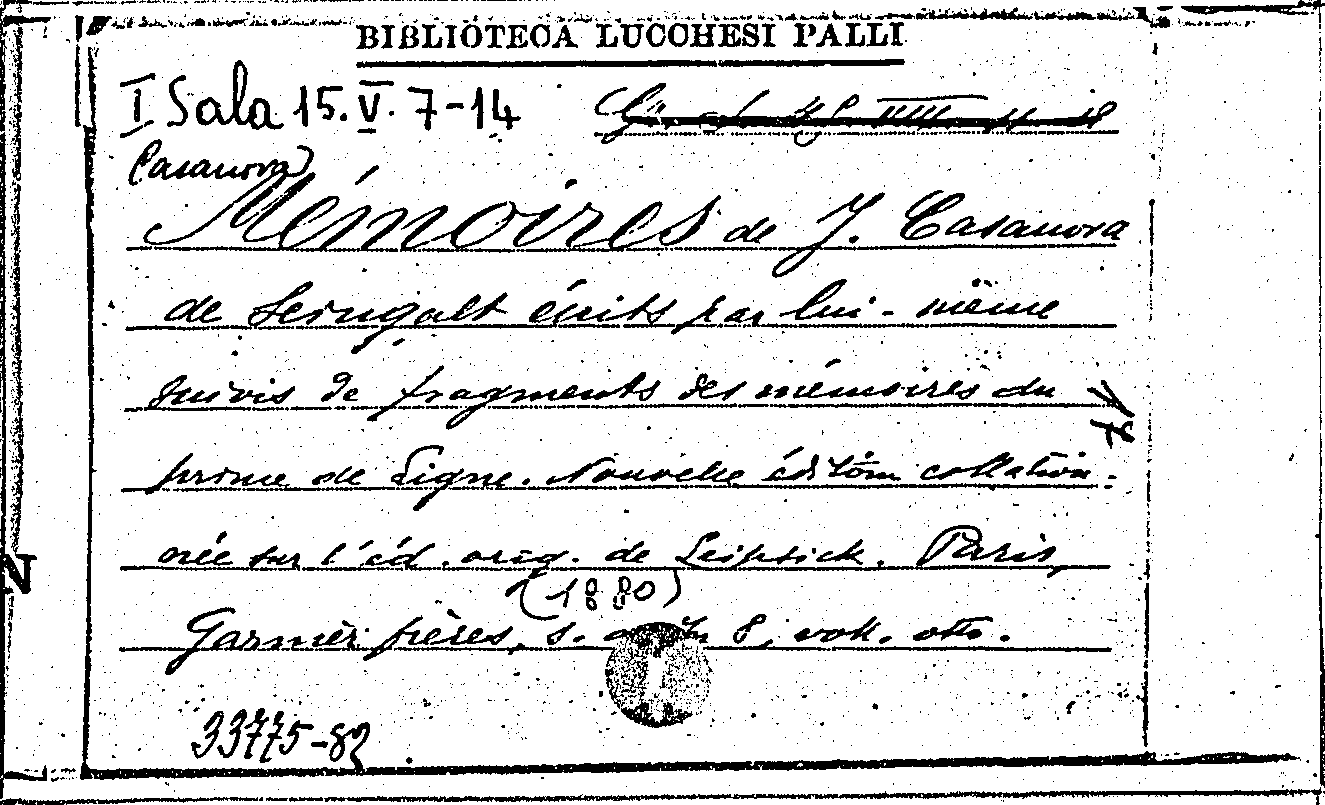 BIBLIOTECA LUCCHESI PALLI
I Sala 15. V. 7-14
Casanova
Mémoires de J. Casanova
de Seingalt écrits par lui-même
suivis de fragments des mémoires du
prince de Ligne. Nouvelle édition collation-
née sur l'éd. orig. de Leipsick. Paris,
(1880)
Garnier frères, s. in 8, voll. otto.
33775-82